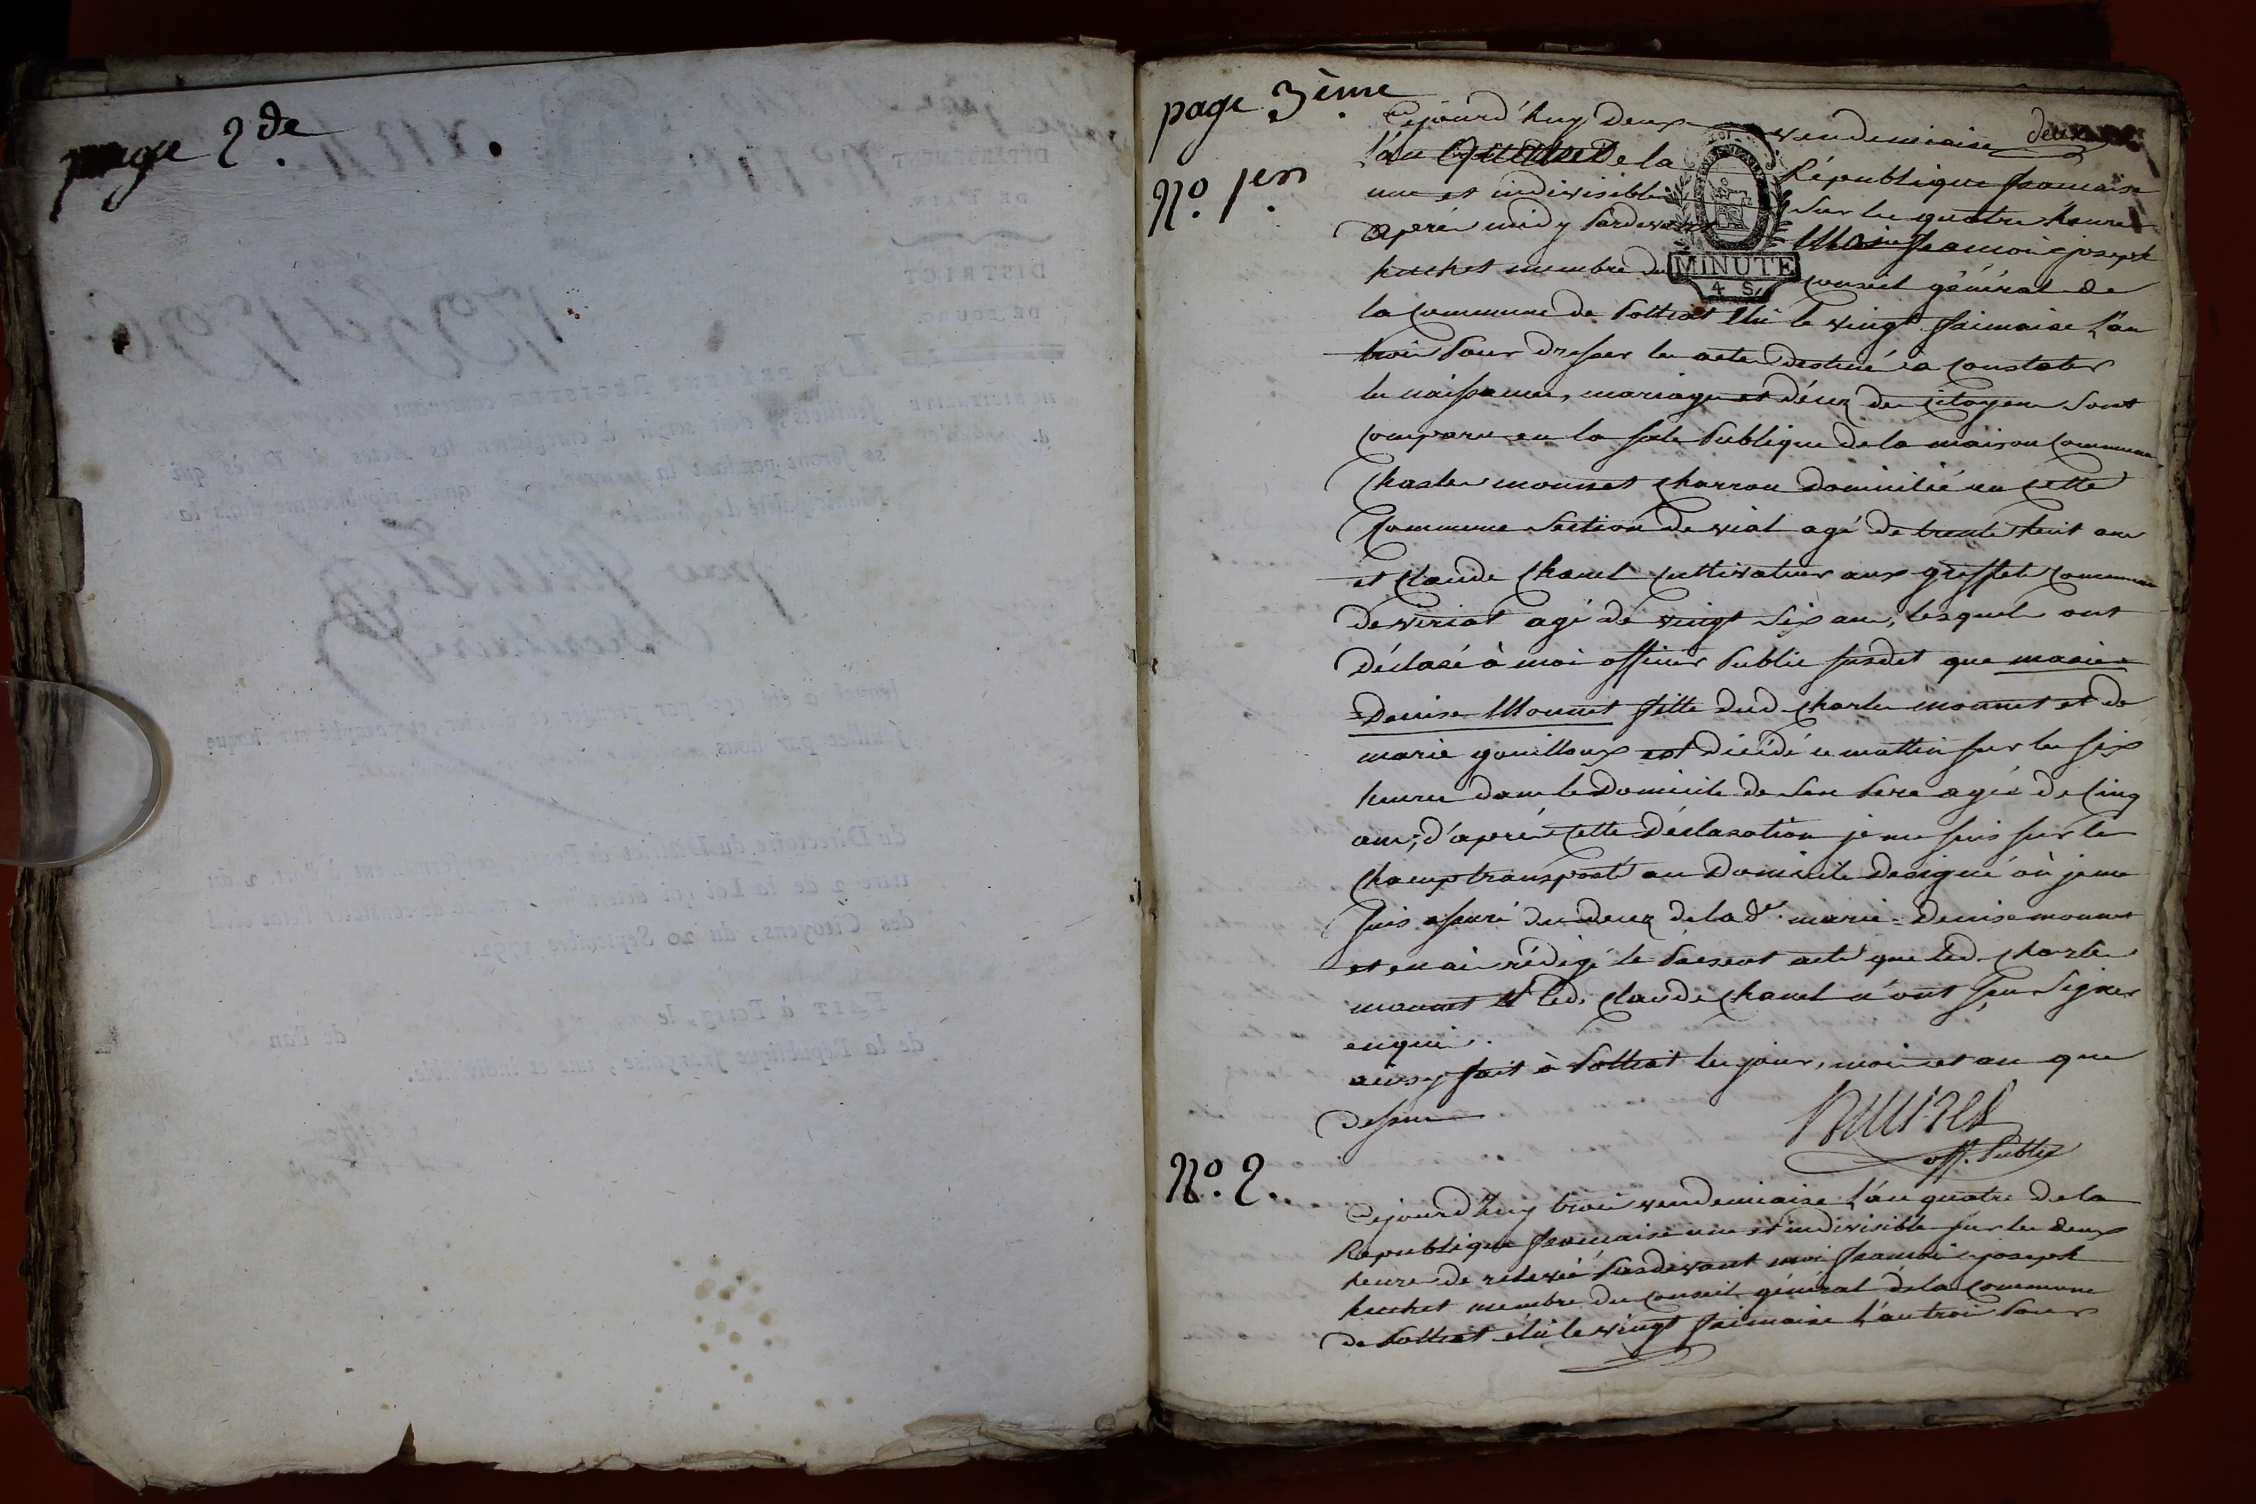 page 2de.
page 3ème
deux
No. 1er.
Cejourd'huy deux vendemiaire
l'an quatre De la République francaise
une et indivisible sur les quatre heures
après midy Pardevant Moi francois joseph
huchet membre du conseil général de
MINUTE
4 S
la commune de Polliat élu le vingt frimaire l'an
trois Pour dresser les actes destiné à constater
les naissances, mariages et décez des citoyens Sont
comparu en la sale Publique de la maison commune
Charles monnet charron Domicilié en cette
commune Section de vial agé de trente huit ans
et Claude Chanel cultivateur aux greffets commune
de viriat agé de vingt six ans, lesquels ont
Déclaré à moi officier Public susdit que marie
=Denise Monnet fille dud. Charles monnet et de
marie gouilloux est décédé ce mattin sur les six
heures dans le Domicile de Son Pere agée de Cinq
ans, d'après cette Déclaration je me suis sur le
champ transporté au Domicile designé où je me
suis assuré du decez de la de. marie-Denise monnet
et en ai rédigé le Present acte que led. Charles
monnet et led. Claude Chanel n'ont sçu Signer
enquis.
ainsy fait à Polliat les jour, mois et an que
dessus
huchet
off. Public
No. 2.
Cejourd'huy trois vendemiaire l'an quatre De la
Republique francaise une et indivisible sur les deux
heures de relevée Pardevant moi francois joseph
huchet membre du conseil général de la commune
de Polliat élu le vingt frimaire l'an trois Pour